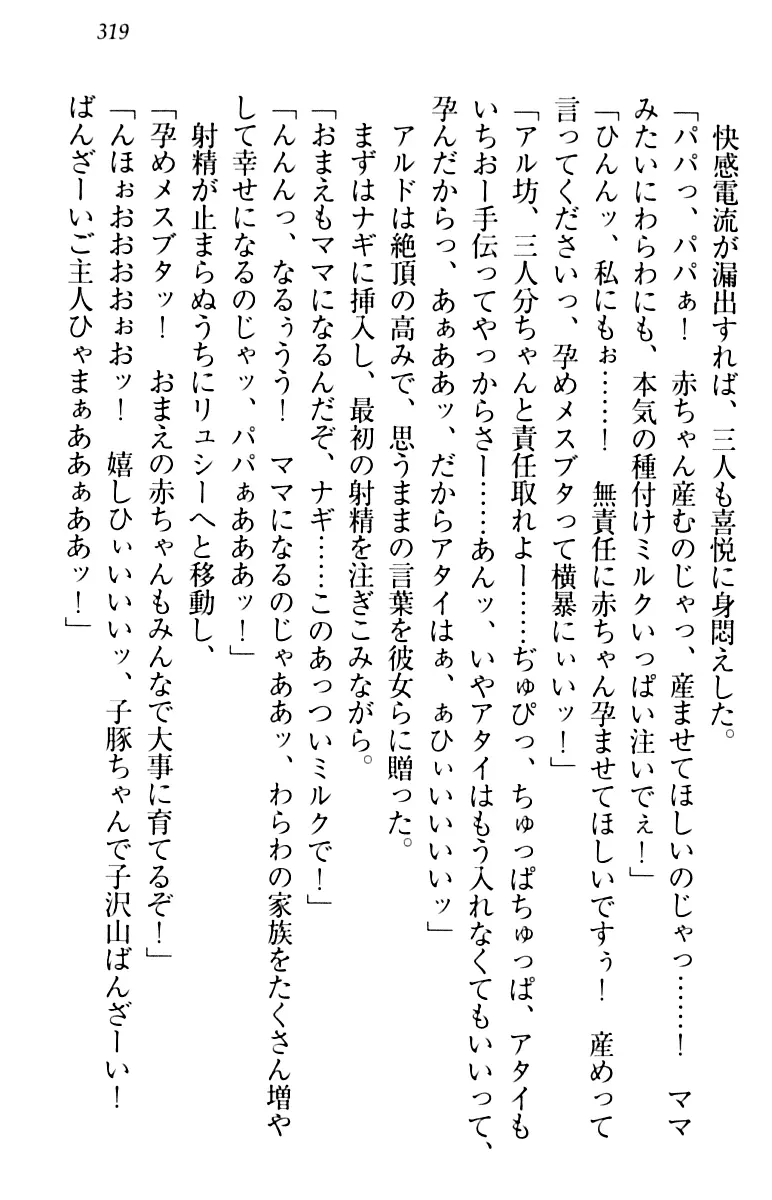 319
快感電流が漏出すれば、三人も喜悦に身悶えした。
「パパっ、パパぁ！　赤ちゃん産むのじゃっ、産ませてほしいのじゃっ……！　ママ
みたいにわらわにも、本気の種付けミルクいっぱい注いでぇ！」
「ひんんッ、私にもぉ……！　無責任に赤ちゃん孕ませてほしいですぅ！　産めって
言ってくださいっ、孕めメスブタって横暴にぃいッ！」
「アル坊、三人分ちゃんと責任取れよー……ぢゅぴっ、ちゅっぱちゅっぱ、アタイも
いちおー手伝ってやっからさー……あんッ、いやアタイはもう入れなくてもいいって、
孕んだからっ、あぁああッ、だからアタイはぁ、ぁひぃいいいいッ」
アルドは絶頂の高みで、思うままの言葉を彼女らに贈った。
まずはナギに挿入し、最初の射精を注ぎこみながら。
「おまえもママになるんだぞ、ナギ……このあっついミルクで！」
「んんんっ、なるぅうう！　ママになるのじゃああッ、わらわの家族をたくさん増や
して幸せになるのじゃッ、パパぁあああッ！」
射精が止まらぬうちにリュシーへと移動し、
「孕めメスブタッ！　おまえの赤ちゃんもみんなで大事に育てるぞ！」
「んほぉおおおおぉおッ！　嬉しひぃいいいいッ、子豚ちゃんで子沢山ばんざーい！
ばんざーいご主人ひゃまぁああぁああッ！」